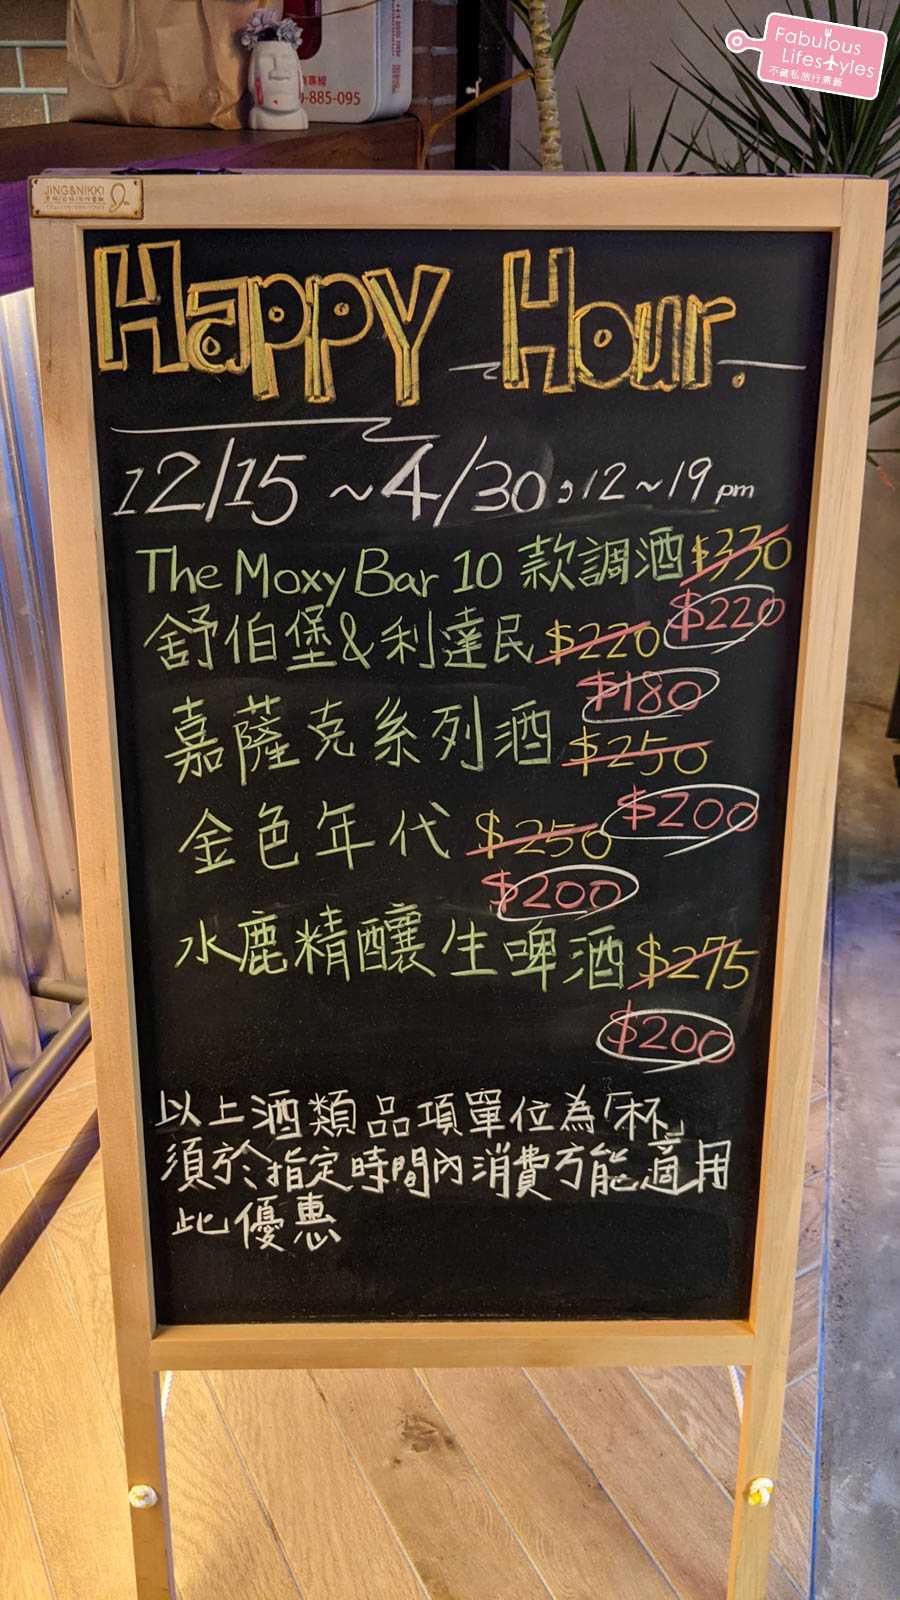 Fabulous
Lifestyles
不藏私旅行煮藝
885-095
JING&NIKKI
Happy Hour.
12/15 ~ 4/30，12~19 pm
The Moxy Bar 10 款調酒 $330
$220
舒伯堡&利達民 $220
$180
嘉薩克系列酒 $250
$200
金色年代 $250
$200
水鹿精釀生啤酒 $275
$200
以上酒類品項單位為「杯」
須於指定時間內消費方能適用
此優惠